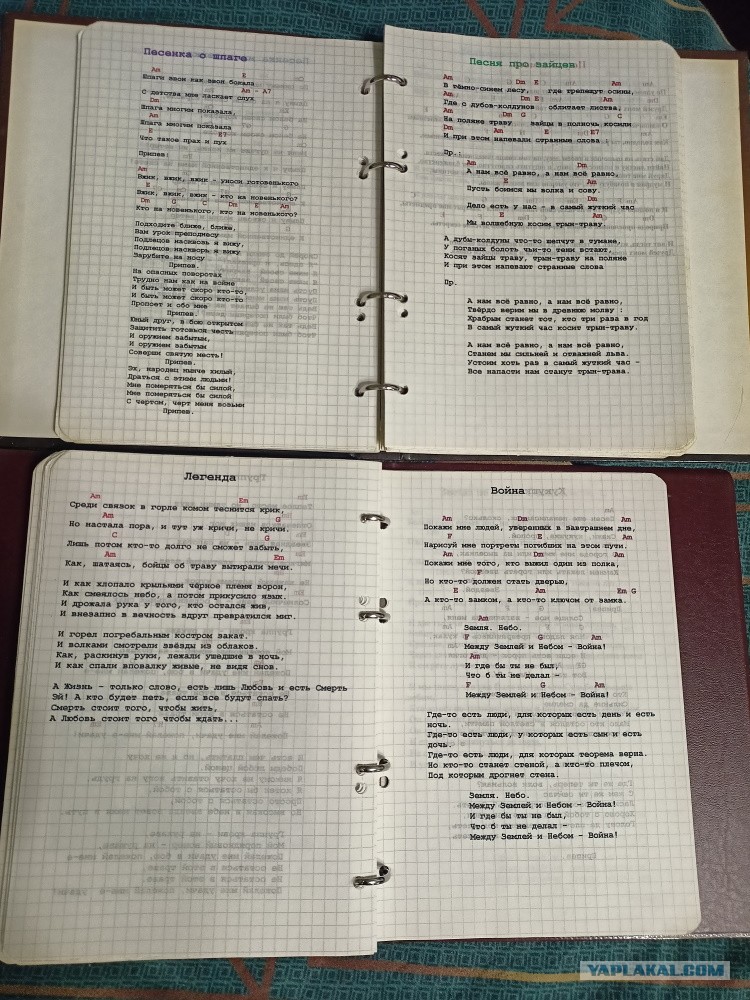 Песенка о шпаге
Am E
Шпаги звон как звон бокала
Am - A7
С детства мне ласкает слух
Dm
Шпага многим показала,
Am
Шпага многим показала
E E7
Что такое прах и пух
Припев:
Am
Вжик, вжик, вжик - уноси готовенького
E Am
Вжик, вжик, вжик - кто на новенького?
Dm G C Dm E Am
Кто на новенького, кто на новенького?
Подходите ближе, ближе,
Вам урок преподнесу
Подлецов насквозь я вижу,
Подлецов насквозь я вижу
Зарубите на носу
Припев.
На опасных поворотах
Трудно нам как на войне
И быть может скоро кто-то,
И быть может скоро кто-то
Пропоет и обо мне
Припев.
Юный друг, в бою открытом
Защитить готовься честь
И оружием забытым,
И оружием забытым
Соверши святую месть!
Припев.
Эх, народец нынче хилый,
Драться с этими людьми!
Мне померяться бы силой,
Мне померяться бы силой
С чертом, черт меня возьми
Припев.
Песня про зайцев
Am Dm E Am
В тёмно-синем лесу, где трепещут осины,
Am Dm E Am
Где с дубов-колдунов облетает листва,
Am Dm G C
На поляне траву зайцы в полночь косили
Dm Am E E7
И при этом напевали странные слова :
Пр.:
Am Dm
А нам всё равно, а нам всё равно,
E Am
Пусть боимся мы волка и сову.
Dm
Дело есть у нас - в самый жуткий час
E Am
Мы волшебную косим трын-траву.
А дубы-колдуны что-то шепчут в тумане,
У поганых болоть чьи-то тени встают,
Косят зайцы траву, трын-траву на поляне
И при этом напевают странные слова
Пр.
А нам всё равно, а нам всё равно,
Твёрдо верим мы в древнюю молву :
Храбрым станет тот, кто три раза в год
В самый жуткий час косит трын-траву.
А нам всё равно, а нам всё равно,
Станем мы сильней и отважней льва.
Устоим хоть раз в самый жуткий час -
Все напасти нам станут трын-трава.
Легенда
Am Em
Среди связок в горле комом теснится крик,
Am G
Но настала пора, и тут уж кричи, не кричи.
C G
Лишь потом кто-то долго не сможет забыть,
Am Em
Как, шатаясь, бойцы об траву вытирали мечи.
И как хлопало крыльями чёрное племя ворон,
Как смеялось небо, а потом прикусило язык.
И дрожала рука у того, кто остался жив,
И внезапно в вечность вдруг превратился миг.
И горел погребальным костром закат.
И волками смотрели звёзды из облаков.
Как, раскинув руки, лежали ушедшие в ночь,
И как спали вповалку живые, не видя снов.
А Жизнь - только слово, есть лишь Любовь и есть Смерть
Эй! А кто будет петь, если все будут спать?
Смерть стоит того, чтобы жить,
А Любовь стоит того чтобы ждать...
Война
Am Dm Am
Покажи мне людей, уверенных в завтрашнем дне,
F E Am
Нарисуй мне портреты погибших на этом пути.
Am Dm Am
Покажи мне того, кто выжил один из полка,
F
Но кто-то должен стать дверью,
E Am Em G
А кто-то замком, а кто-то ключом от замка.
Am
Земля. Небо.
F G Am
Между Землей и Небом - Война!
Am
И где бы ты не был,
Что б ты не делал -
F G Am
Между Землей и Небом - Война!
Где-то есть люди, для которых есть день и есть
ночь.
Где-то есть люди, у которых есть сын и есть
дочь.
Где-то есть люди, для которых теорема верна.
Но кто-то станет стеной, а кто-то плечом,
Под которым дрогнет стена.
Земля. Небо.
Между Землей и Небом - Война!
И где бы ты не был,
Что б ты не делал -
Между Землей и Небом - Война!
YAPLAKAL.COM